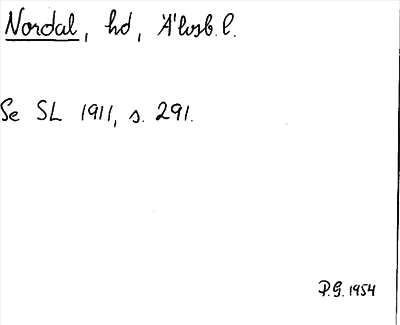 Nordal, hd, Älvsb. l.
Se SL 1911, s. 291.
P.G. 1954